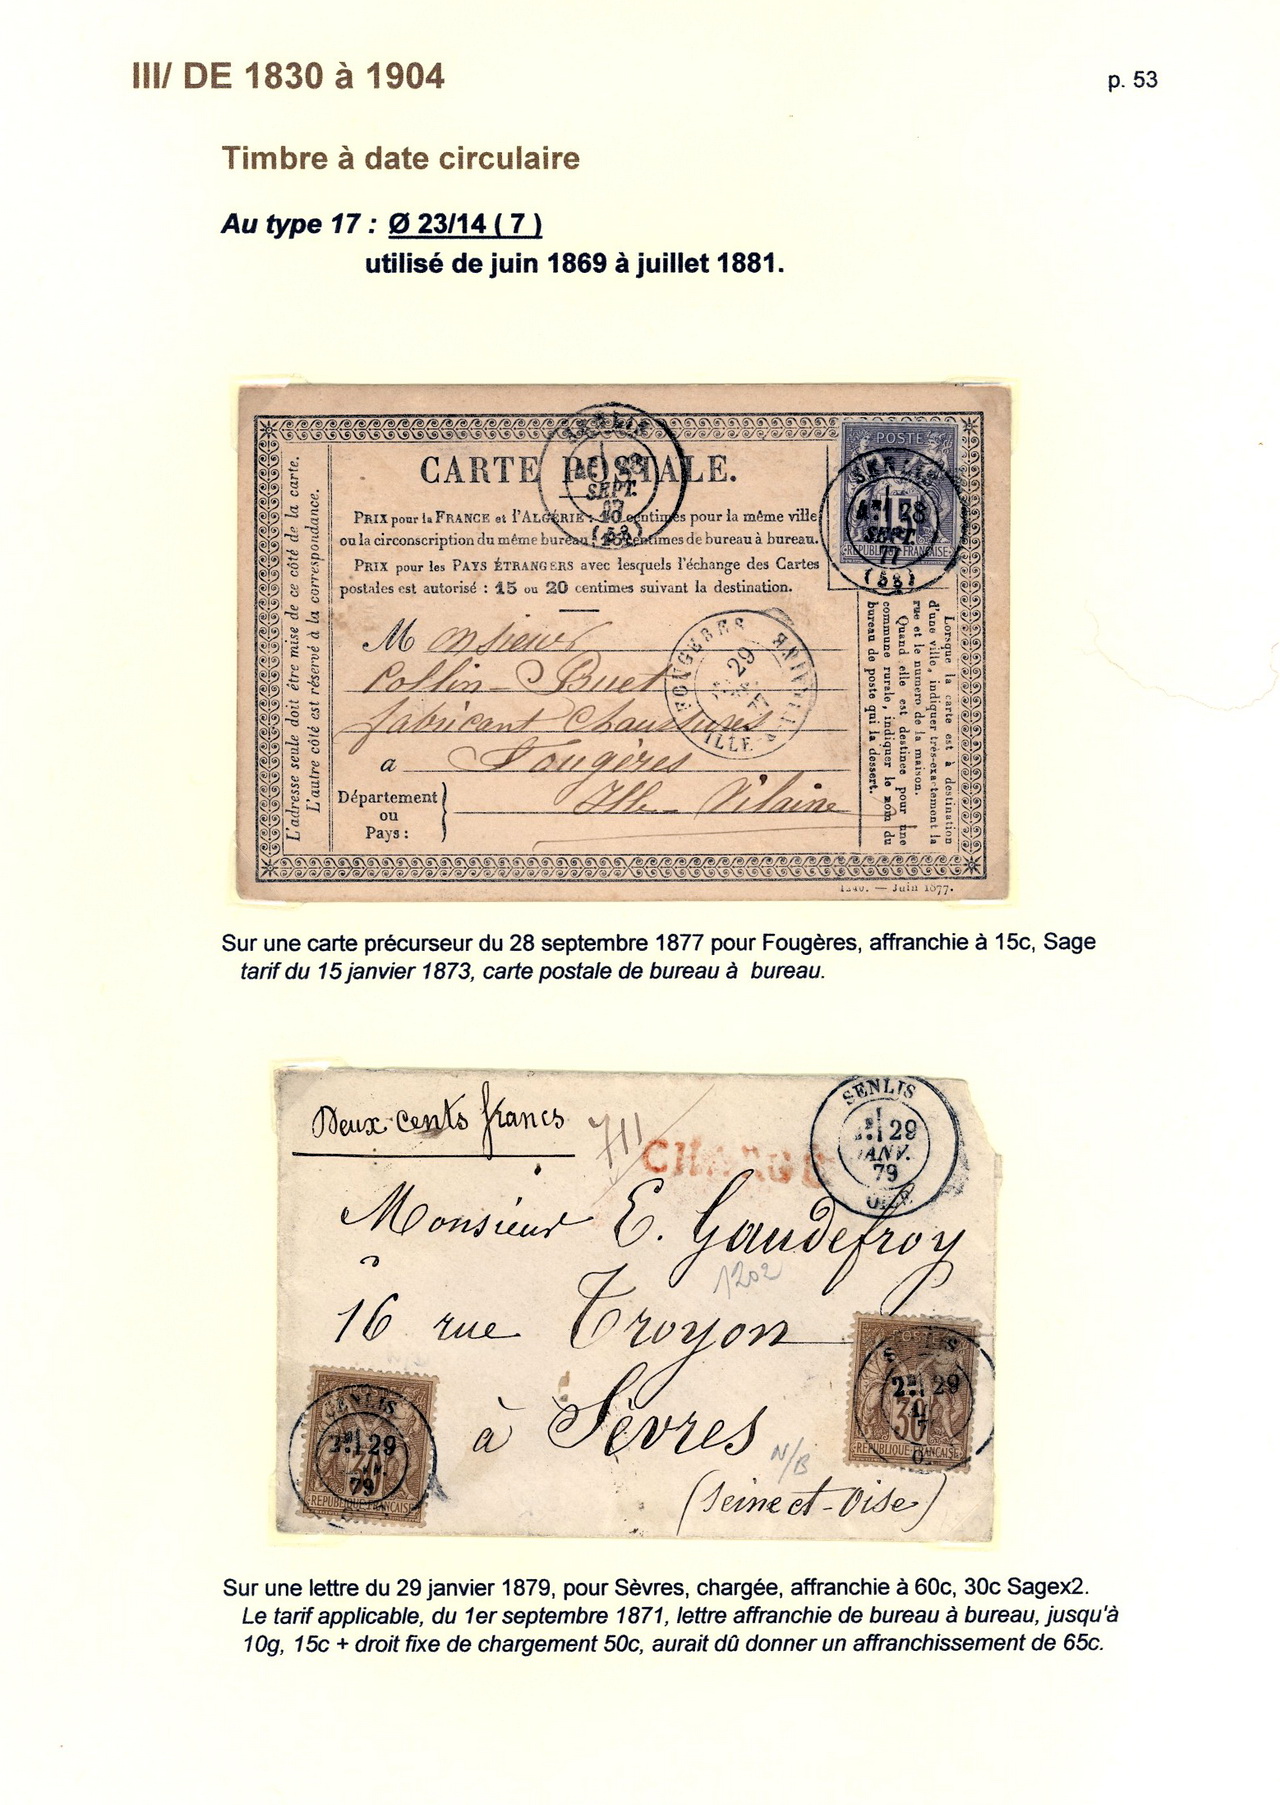 III/ DE 1830 à 1904
p. 53
Timbre à date circulaire
Au type 17 : Ø 23/14 ( 7 )
utilisé de juin 1869 à juillet 1881.
CARTE POSTALE.
PRIX pour la FRANCE et l'ALGÉRIE : centimes pour la même ville
ou la circonscription du même bureau; centimes de bureau à bureau.
PRIX pour les PAYS ÉTRANGERS avec lesquels l'échange des Cartes
postales est autorisé : 15 ou 20 centimes suivant la destination.
L'adresse seule doit être mise de ce côté de la carte.
L'autre côté est réservé à la correspondance.
SENLIS
28
SEPT.
(58)
POSTE
15
REPUBLIQUE FRANCAISE
SENLIS
28
SEPT.
77
(58)
Monsieur
Collin-Buet
fabricant Chaussures
a Fougères
Département
ou
Pays :
Ille Vilaine
FOUGERES
29
ILLE
Lorsque la carte est à destination
d'une ville, indiquer très-exactement la
rue et le numero de la maison.
Quand elle est destinée pour une
commune rurale, indiquer le nom du
bureau de poste qui la dessert.
Juin 1877.
Sur une carte précurseur du 28 septembre 1877 pour Fougères, affranchie à 15c, Sage
tarif du 15 janvier 1873, carte postale de bureau à bureau.
Deux cents francs
711
CHARGÉ
SENLIS
29
JANV.
79
OISE
Monsieur E. Gaudefroy
1202
16 rue Troyon
à Sèvres
N/B
(Seine et-Oise)
SENLIS
29
79
30
REPUBLIQUE FRANCAISE
POSTE
29
30
REPUBLIQUE FRANCAISE
Sur une lettre du 29 janvier 1879, pour Sèvres, chargée, affranchie à 60c, 30c Sagex2.
Le tarif applicable, du 1er septembre 1871, lettre affranchie de bureau à bureau, jusqu'à
10g, 15c + droit fixe de chargement 50c, aurait dû donner un affranchissement de 65c.